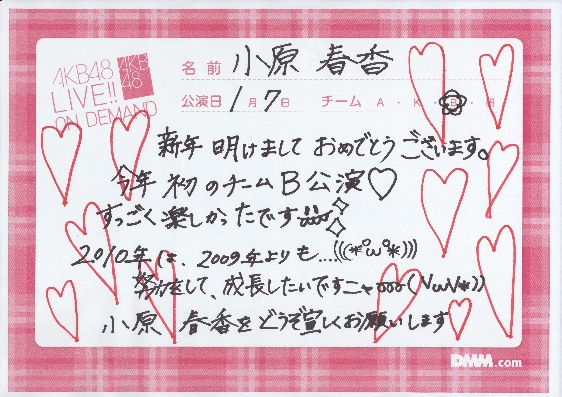 AKB48
LIVE!!
ON DEMAND
AKB
48
名前 小原 春香
公演日 1月7日 チーム A・K・B・研
新年 明けまして おめでとうございます。
今年 初のチームB公演♡
すっごく楽しかったです
2010年は、2009年よりも...(((*°ω°*)))
努力をして、成長したいですニャ(\ω\*))
小原 春香をどうぞ宜しくお願いします
DMM.com